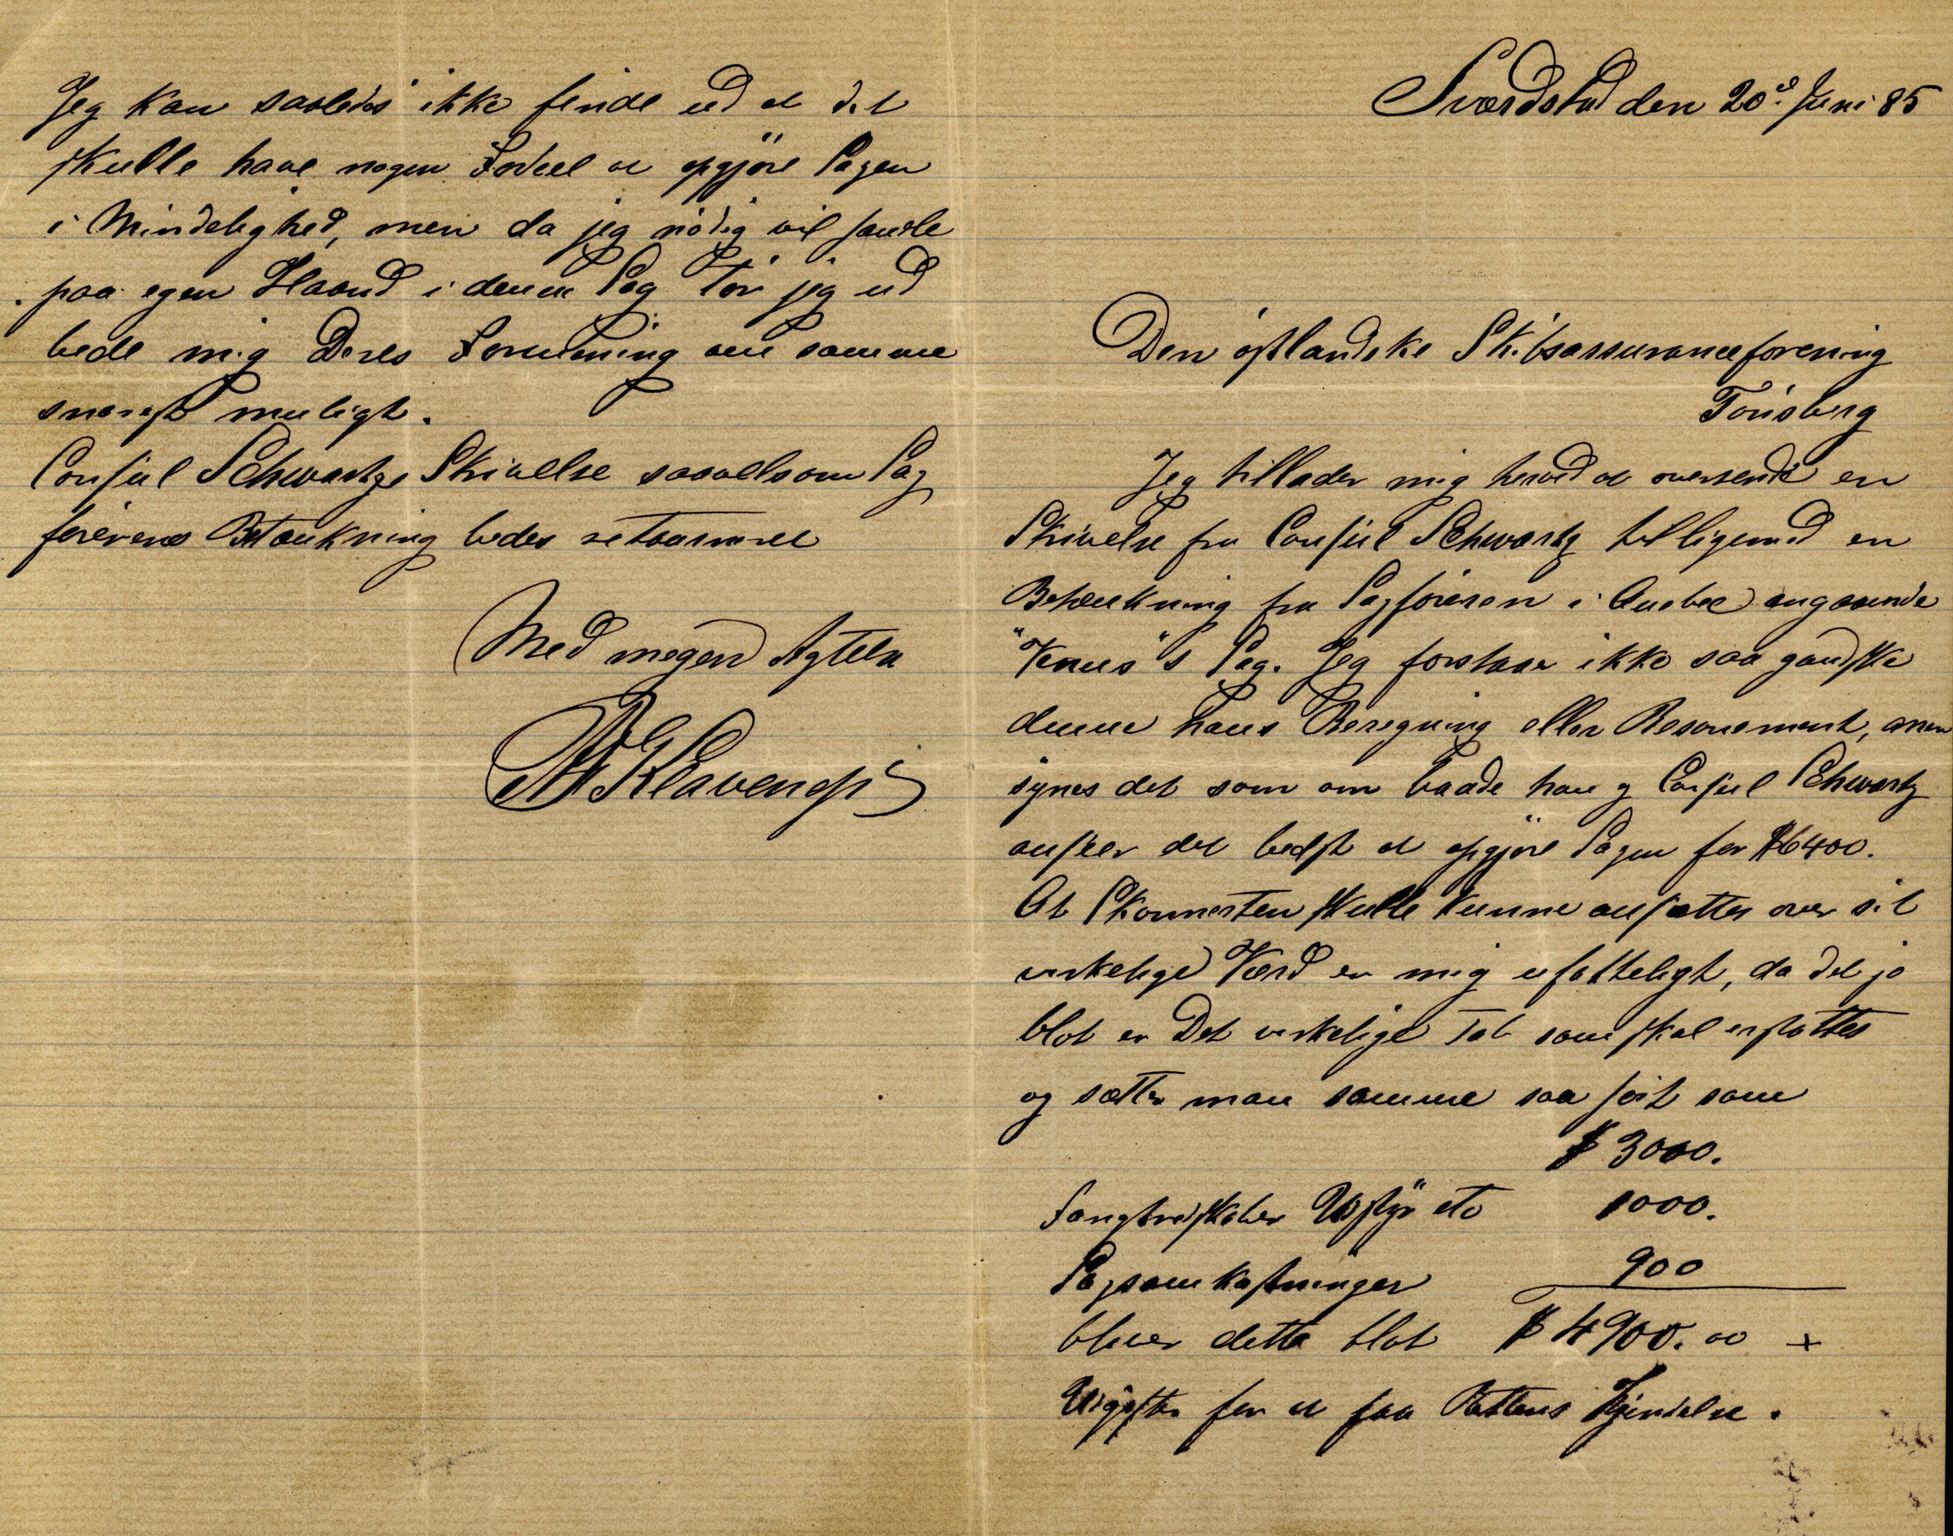 Sværdstad den 20de Juni 85
Den östlandske Skibsassuranceforening
Tönsberg
Jeg tillader mig herved at oversende en
Skrivelse fra Consul Schwartz tilligemed en
Betænkning fra Sagföreren i Quebec angaaende
"Venus"s Sag. Jeg forstaar ikke saa gandske
denne hans Beregning eller Resonement, men
synes det som om baade han og Consul Schwartz
anseer det bedst at opgjöre Sagen for $6400.
At Skonnerten skulle kunne ansættes over sit
virkelige Værd er mig ufatteligt, da det jo
blot er Det virkelige Tab som skal erstattes
og sætter man samme saa höit som
$ 3000.
Fangstredskaber Udstyr etc 1000.
Sagsomkostninger 900
bliver dette blot $ 4900.00 +
Udgifter for at faa Rettens Kjendelse.
Jeg kan saaledes ikke finde ud at det
skulle have nogen Fordeel at opgjöre Sagen
i Mindelighed, men da jeg nödig vil handle
paa egen Haand i denne Sag tör jeg ud
bede mig Deres Formening om samme
snarest muligt.
Consul Schwartzs Skrivelse saavelsom Sag
förerens Betænkning bedes retourneret
Med megen Agtelse
Klavenes